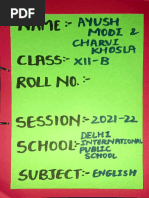 NAME:- AYUSH
MODI &
CHARVI
KHOSLA
CLASS:- XII-B
ROLL NO. :-
SESSION:- 2021-22
SCHOOL:- DELHI
INTERNATIONAL
PUBLIC
SCHOOL
SUBJECT:- ENGLISH